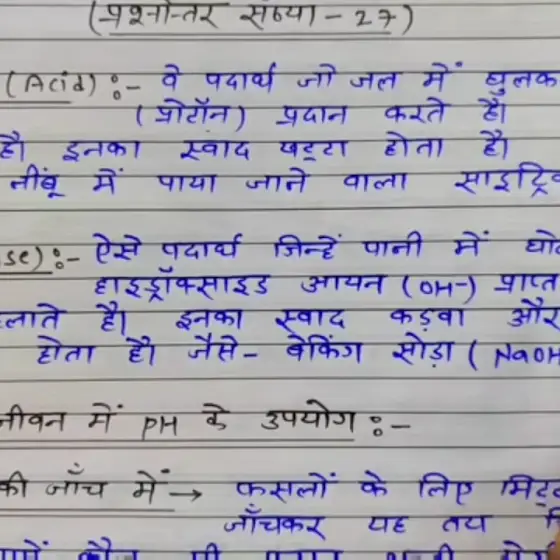 (प्रश्नोत्तर संख्या - 27)
(Acid) :- वे पदार्थ जो जल में घुलक
(प्रोटॉन) प्रदान करते है।
है। इनका स्वाद खट्टा होता है।
नींबू में पाया जाने वाला साइट्रि
se) :- ऐसे पदार्थ जिन्हें पानी में घो
हाइड्रॉक्साइड आयन (OH-) प्राप्त
लाते है। इनका स्वाद कड़वा और
होता है। जैसे- बेकिंग सोड़ा ( NaOH
जीवन में PH के उपयोग :-
की जाँच में → फसलों के लिए मिट्
जाँचकर यह तय